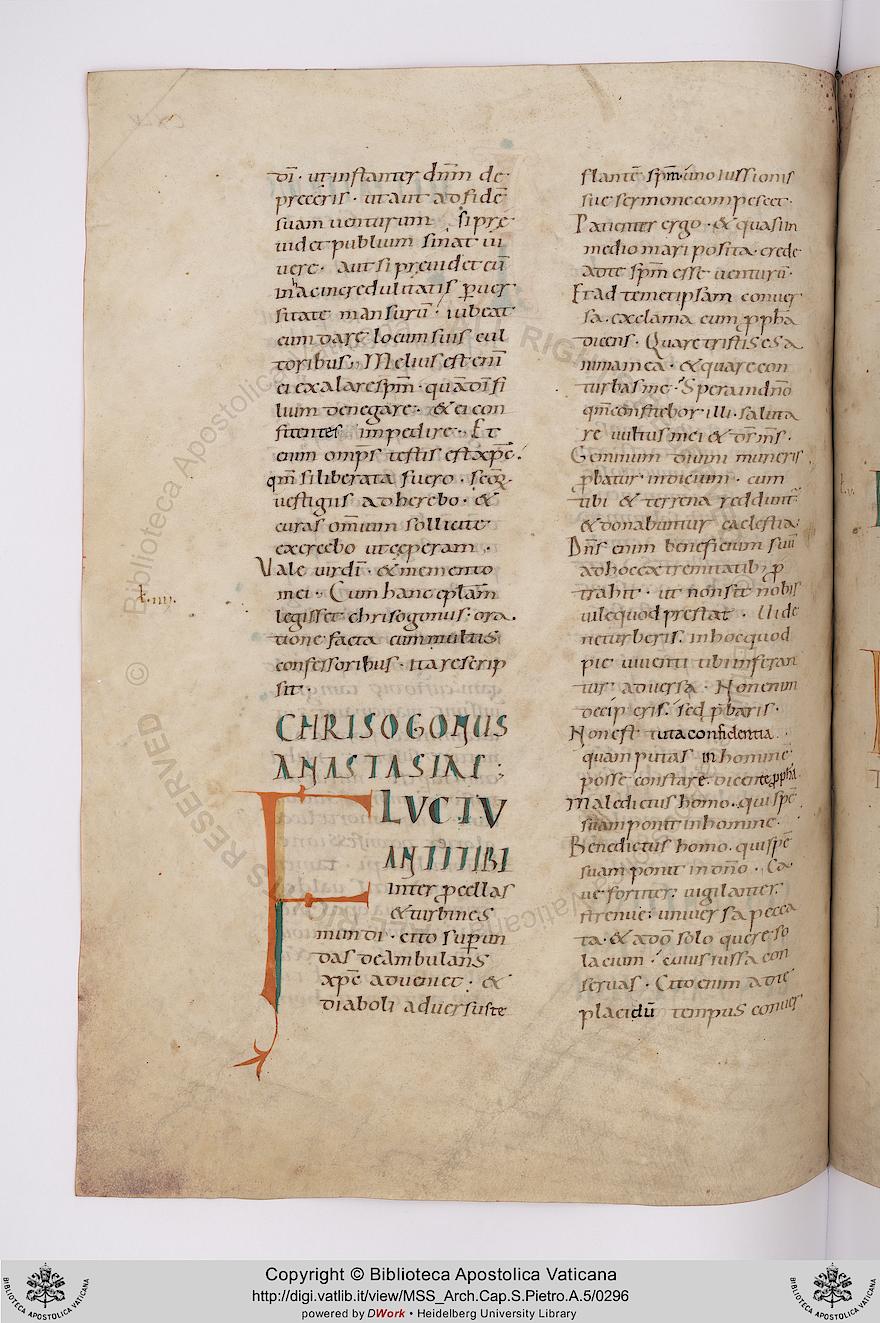 di · ut instanter dnm de
preceris · ut aut ad fidē
suam uenturum · si pre
uidet publium sinat ui
uere · aut si preuidet eū
in hac incredulitatis ꝑuer
sitate mansurū · iubeat
eum dare locum suis cul
toribus · Melius est enī
ei exalare spm · quā dī fi
lium denegare · & ei con
fitentes impedire · Et
enim omps testis est xpē ·
qm si liberata fuero · scōꝝ
uestigiis adherebo · &
curas omnium sollicite
exercebo ut ceperam ·
Vale uir dī · & memento
mei · Cum hanc eplam
legisset chrisogonus · ora
tione facta cum multis
confessoribus · ita rescrip
sit ·
CHRISOGONUS
ANASTASIAE ;
FLVCTV
ANTI TIBI
inter ꝓcellas
& turbines
mundi · cito sup un
das deambulans
xpē adueniet · &
diaboli aduersu te
flantē spm · uno iussionis
sue sermone compescet ·
Patienter ergo · & quasi in
medio mari posita · crede
ad te xpm esse uenturū ·
Et ad temetipsam conuer
sa · exclama cum ꝓpha
dicens · Quare tristis es a
nima mea · & quare con
turbas me · Spera in dno
qm confitebor illi · saluta
re uultus mei & ds ms ·
Geminum diuini muneris
ꝓbatur indicium · cum
tibi & terrena reddunt
& donabuntur caelestia ·
Dns enim beneficium suū
ad hoc extremitatib; ꝓ
trahit · ut non sit nobis
uile quod prestat · Uide
ne turberis · in hoc quod
pie uiuenti tibi inferan
tur aduersa · Non enim
deciperis · sed ꝓbaris ·
Non est tuta confidentia ·
quam putas in homine
posse constare · dicente ꝓpha
Maledictus homo · qui spē
suam ponit in homine ·
Benedictus homo · qui spē
suam ponit in dno · Ca
ue fortiter · uigilanter ·
strenue · uniuersa pecca
ta · & a do solo quere so
lacium · cuius iussa con
seruas · Cito enim ad te
placidū tempus conuer
Copyright © Biblioteca Apostolica Vaticana
http://digi.vatlib.it/view/MSS_Arch.Cap.S.Pietro.A.5/0296
powered by DWork • Heidelberg University Library